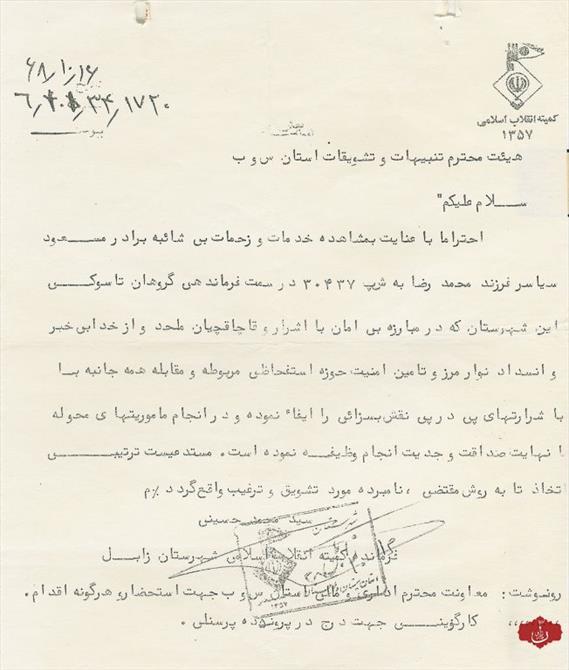 ۶۸/۱۰/۱۶
۱۷۲۰/۳۴/۴۰۱/۶
پیوست
کمیته انقلاب اسلامی
۱۳۵۷
هیئت محترم تنبیهات و تشویقات استان س و ب
سلام علیکم"
احتراما با عنایت بمشاهده خدمات و زحمات بی شائبه برادر مسعود
سیاسر فرزند محمد رضا به شپ ۳۰۴۳۷ در سمت فرماندهی گروهان تاسوکی
این شهرستان که در مبارزه بی امان با اشرار و قاچاقچیان ملحد و از خدابی خبر
و انسداد نوار مرز و تامین امنیت حوزه استحفاظی مربوطه و مقابله همه جانبه با
با شرارتهای پی در پی نقش بسزائی را ایفاء نموده و در انجام ماموریتهای محوله
با نهایت صداقت و جدیت انجام وظیفه نموده است. مستدعیست ترتیبی
اتخاذ تا به روش مقتضی ،نامبرده مورد تشویق و ترغیب واقع گردد
سید محمد حسینی
فرمانده کمیته انقلاب اسلامی شهرستان زابل
رونوشت: معاونت محترم اداری و مالی استان س و ب جهت استحضار و هرگونه اقدام.
،،،،،، کارگزینی جهت درج در پرونده پرسنلی.